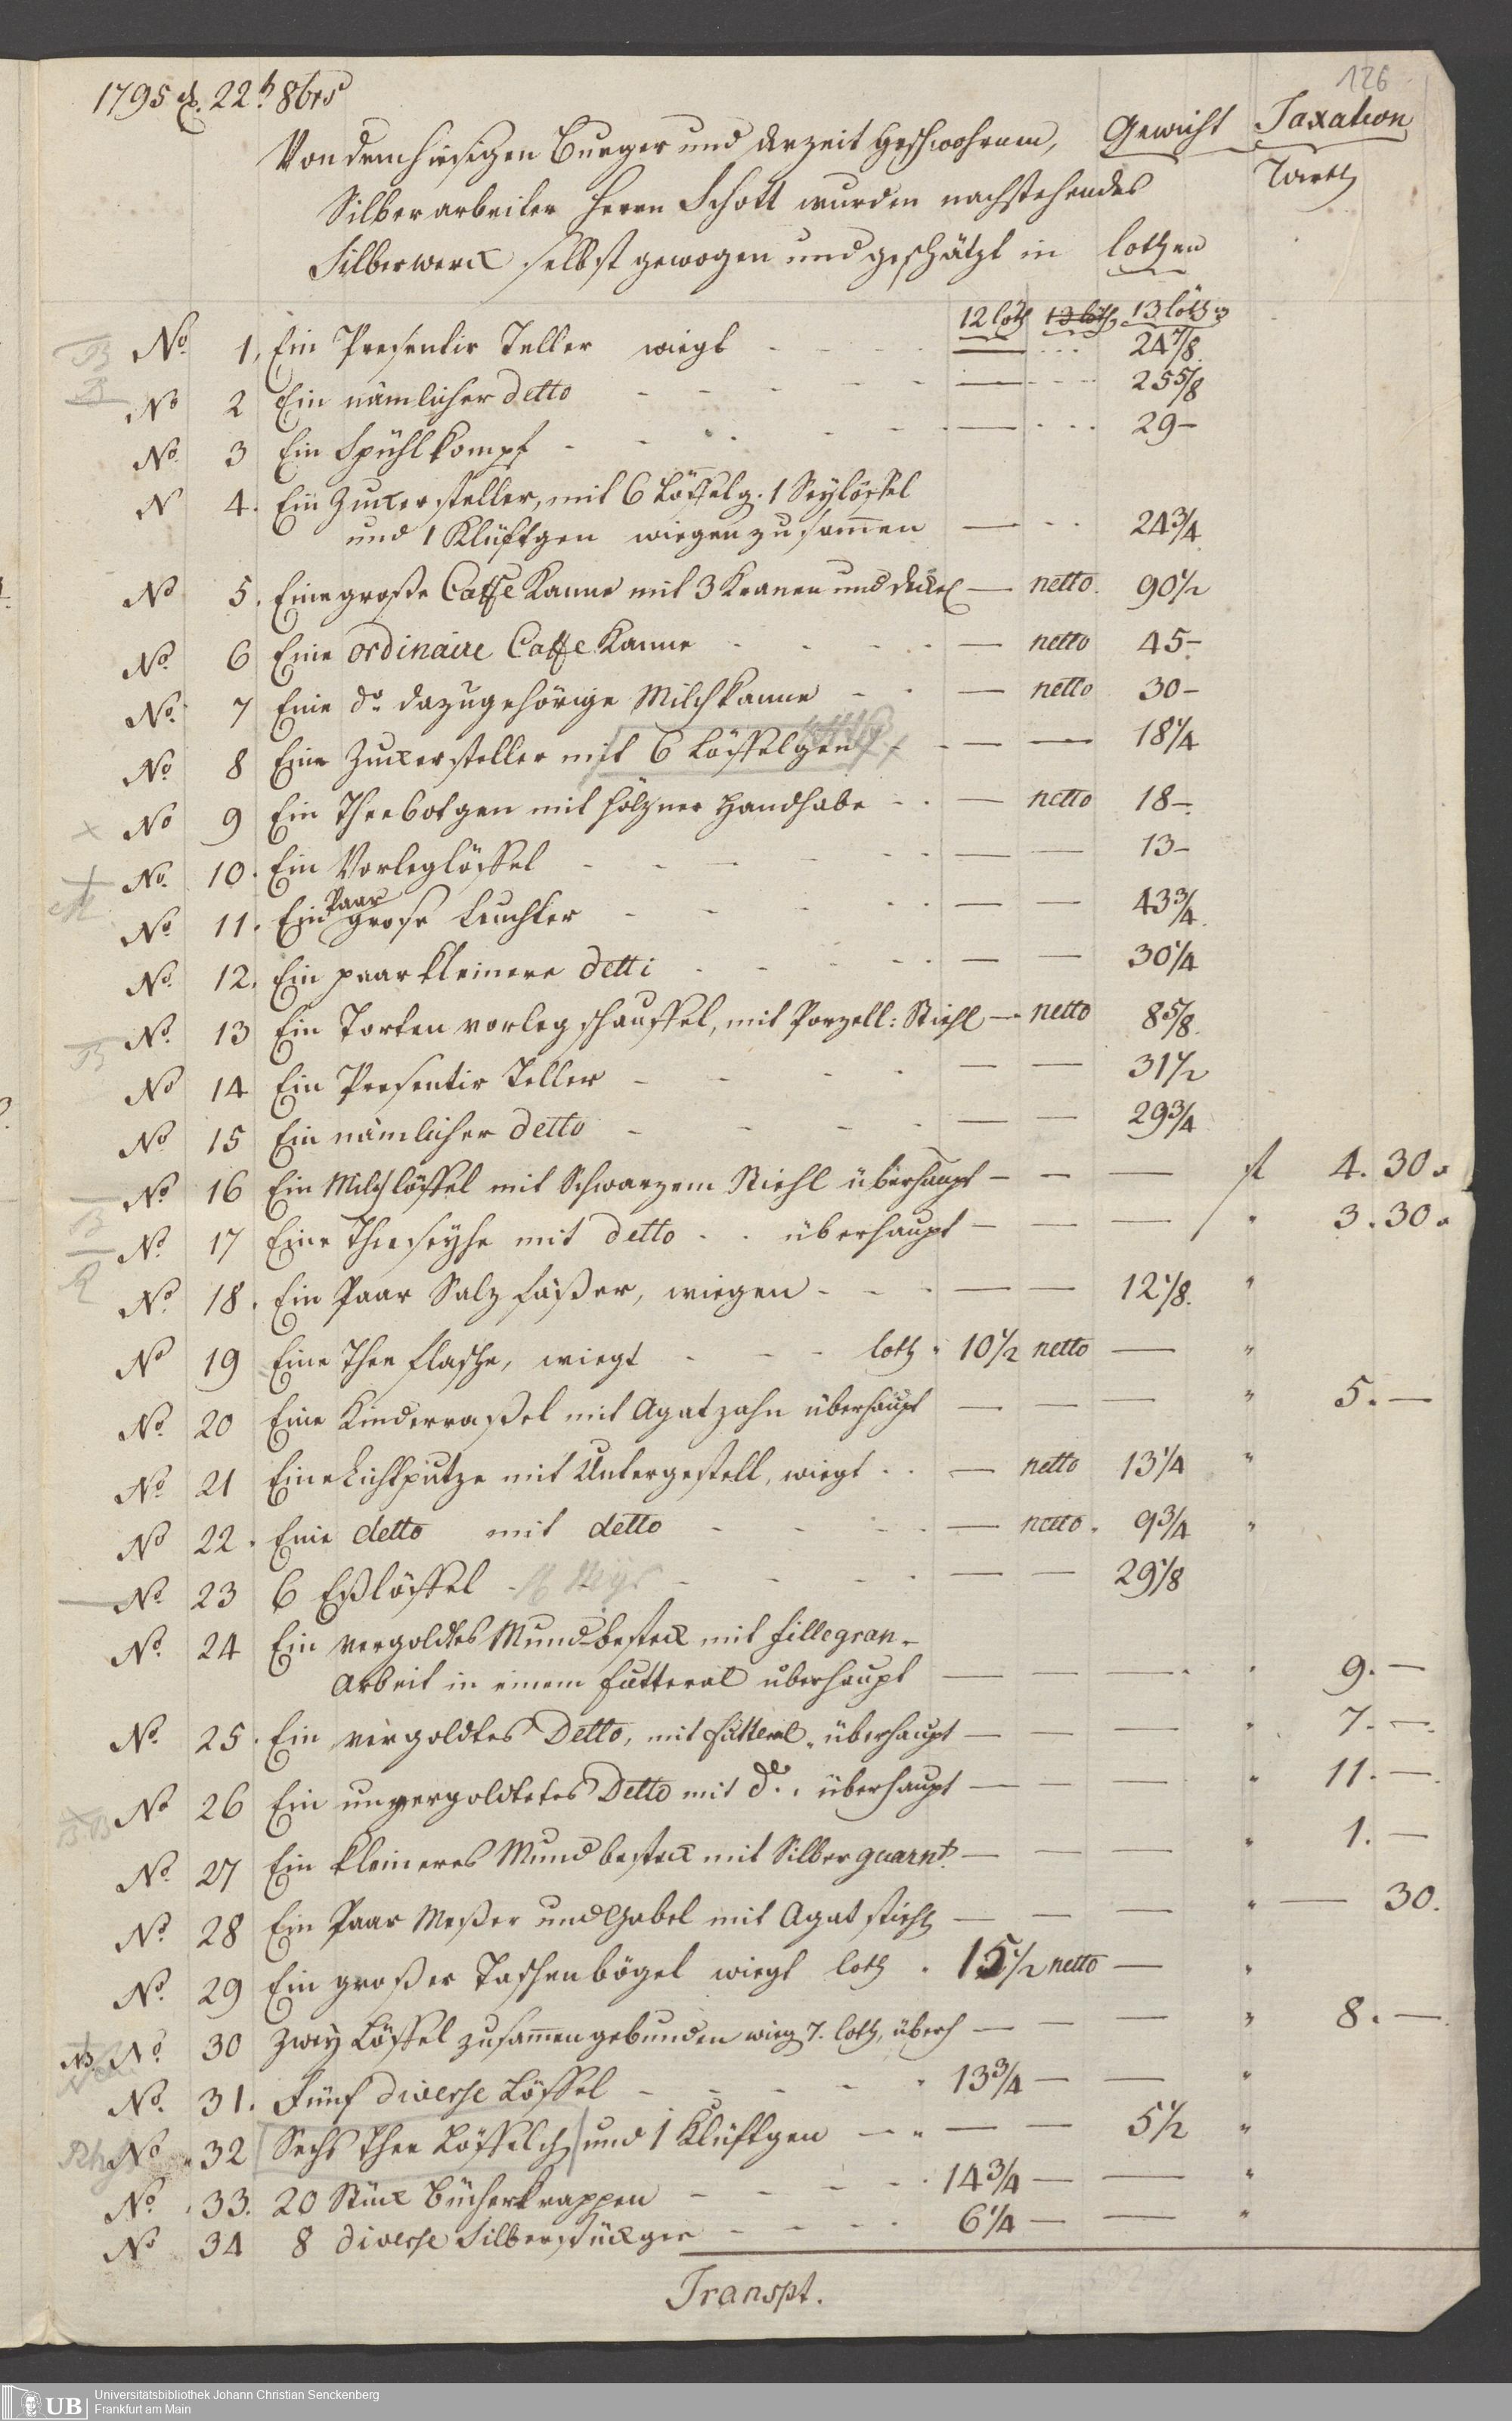 126
1795 d. 22t 8brs
Von dem hiesigen Burger und derzeit Geschwohrnen, Gewicht Taxation
Silberarbeiter Herrn Schott wurden nachstehendes
Silberwerck selbst gewogen und geschätzt in lothen
12 loth 13 loth 13 löth
No 1, Ein Presentir Teller wiegt - - - - 24 7/8
No 2 Ein nämlicher detto - - - - 25 5/8
No 3 Ein Spühlkompf - - - - 29 -
N 4. Ein Zuckersteller, mit 6 Löffelg. 1 Seylöffel
und 1 Klüftgen wiegen zusam̄en - 24 3/4
No 5. Eine große Caffe Kanne mit 3 Kranen und Deckel - netto. 90 1/2
No 6 Eine ordinaire Caffe Kanne - - - netto 45 -
No 7 Eine do dazugehörige Milchkanne - - netto 30 -
No 8 Eine Zuckersteller mit 6 Löffelgen - - 18 1/4
No 9 Ein Theebotgen mit hölzner Handhabe - - netto 18 -
No 10. Ein Vorleglöffel - - - - 13 -
No 11. Ein Paar grose Leuchter - - - - 43 3/4
No 12. Ein paar kleinere detti - - - - 30 1/4
No 13 Ein Torten vorleg schauffel, mit Porzell: Stiehl - netto 8 5/8
No 14 Ein Presentir Teller - - - - 31 1/2
No 15 Ein nämlicher detto - - - - 29 3/4
No 16 Ein Milchlöffel mit Schwarzem Stiehl überhaupt - - - fl 4. 30.
No 17 Eine Theeseyhe mit detto . . überhaupt - - - " 3. 30.
No 18. Ein Paar Salz fäßer, wiegen - - - 12 1/8. "
No 19 Eine Thee flasche, wiegt - - - loth " 10 1/2 netto - "
No 20 Eine Kinderraßel mit Agatzahn überhaupt - - - " 5. -
No 21 Eine Lichtputze mit Untergestell, wiegt . . - netto 13 1/4 "
No 22. Eine detto mit detto - - - netto. 9 3/4 "
No 23 6 Eßlöffel - - - - 29 1/8
No 24 Ein vergoldtes Mundbesteck mit fillegran-
Arbeit in einem Futteral überhaupt - - - " 9. -
No 25. Ein vergoldtes Detto, mit Futteral. überhaupt - - - " 7. -
No 26 Ein unvergoldtetes Detto mit do. . überhaupt - - - " 11. -
No 27 Ein kleineres Mundbesteck mit Silber guarnt. - - - " 1. -
No 28 Ein Paar Meßer und Gabel mit Agat stiehl - - - " - 30.
No 29 Ein großer Taschenbögel wiegt loth . 15 1/2 netto - "
NB. No 30 Zwey Löffel zusam̄en gebunden wieg 7. loth, überh - - - " 8. -
No 31. Fünf diverse Löffel - - - - " 13 3/4 - "
No 32 Sechs Thee Löffelch und 1 Klüftgen - " - - 5 1/2 "
No 33. 20 Stück Bücherkrappen - - - - 14 3/4 - - "
No 34 8 diverse Silberstückger - - - - 6 1/4 - - "
Transpt.
UB Universitätsbibliothek Johann Christian Senckenberg
Frankfurt am Main